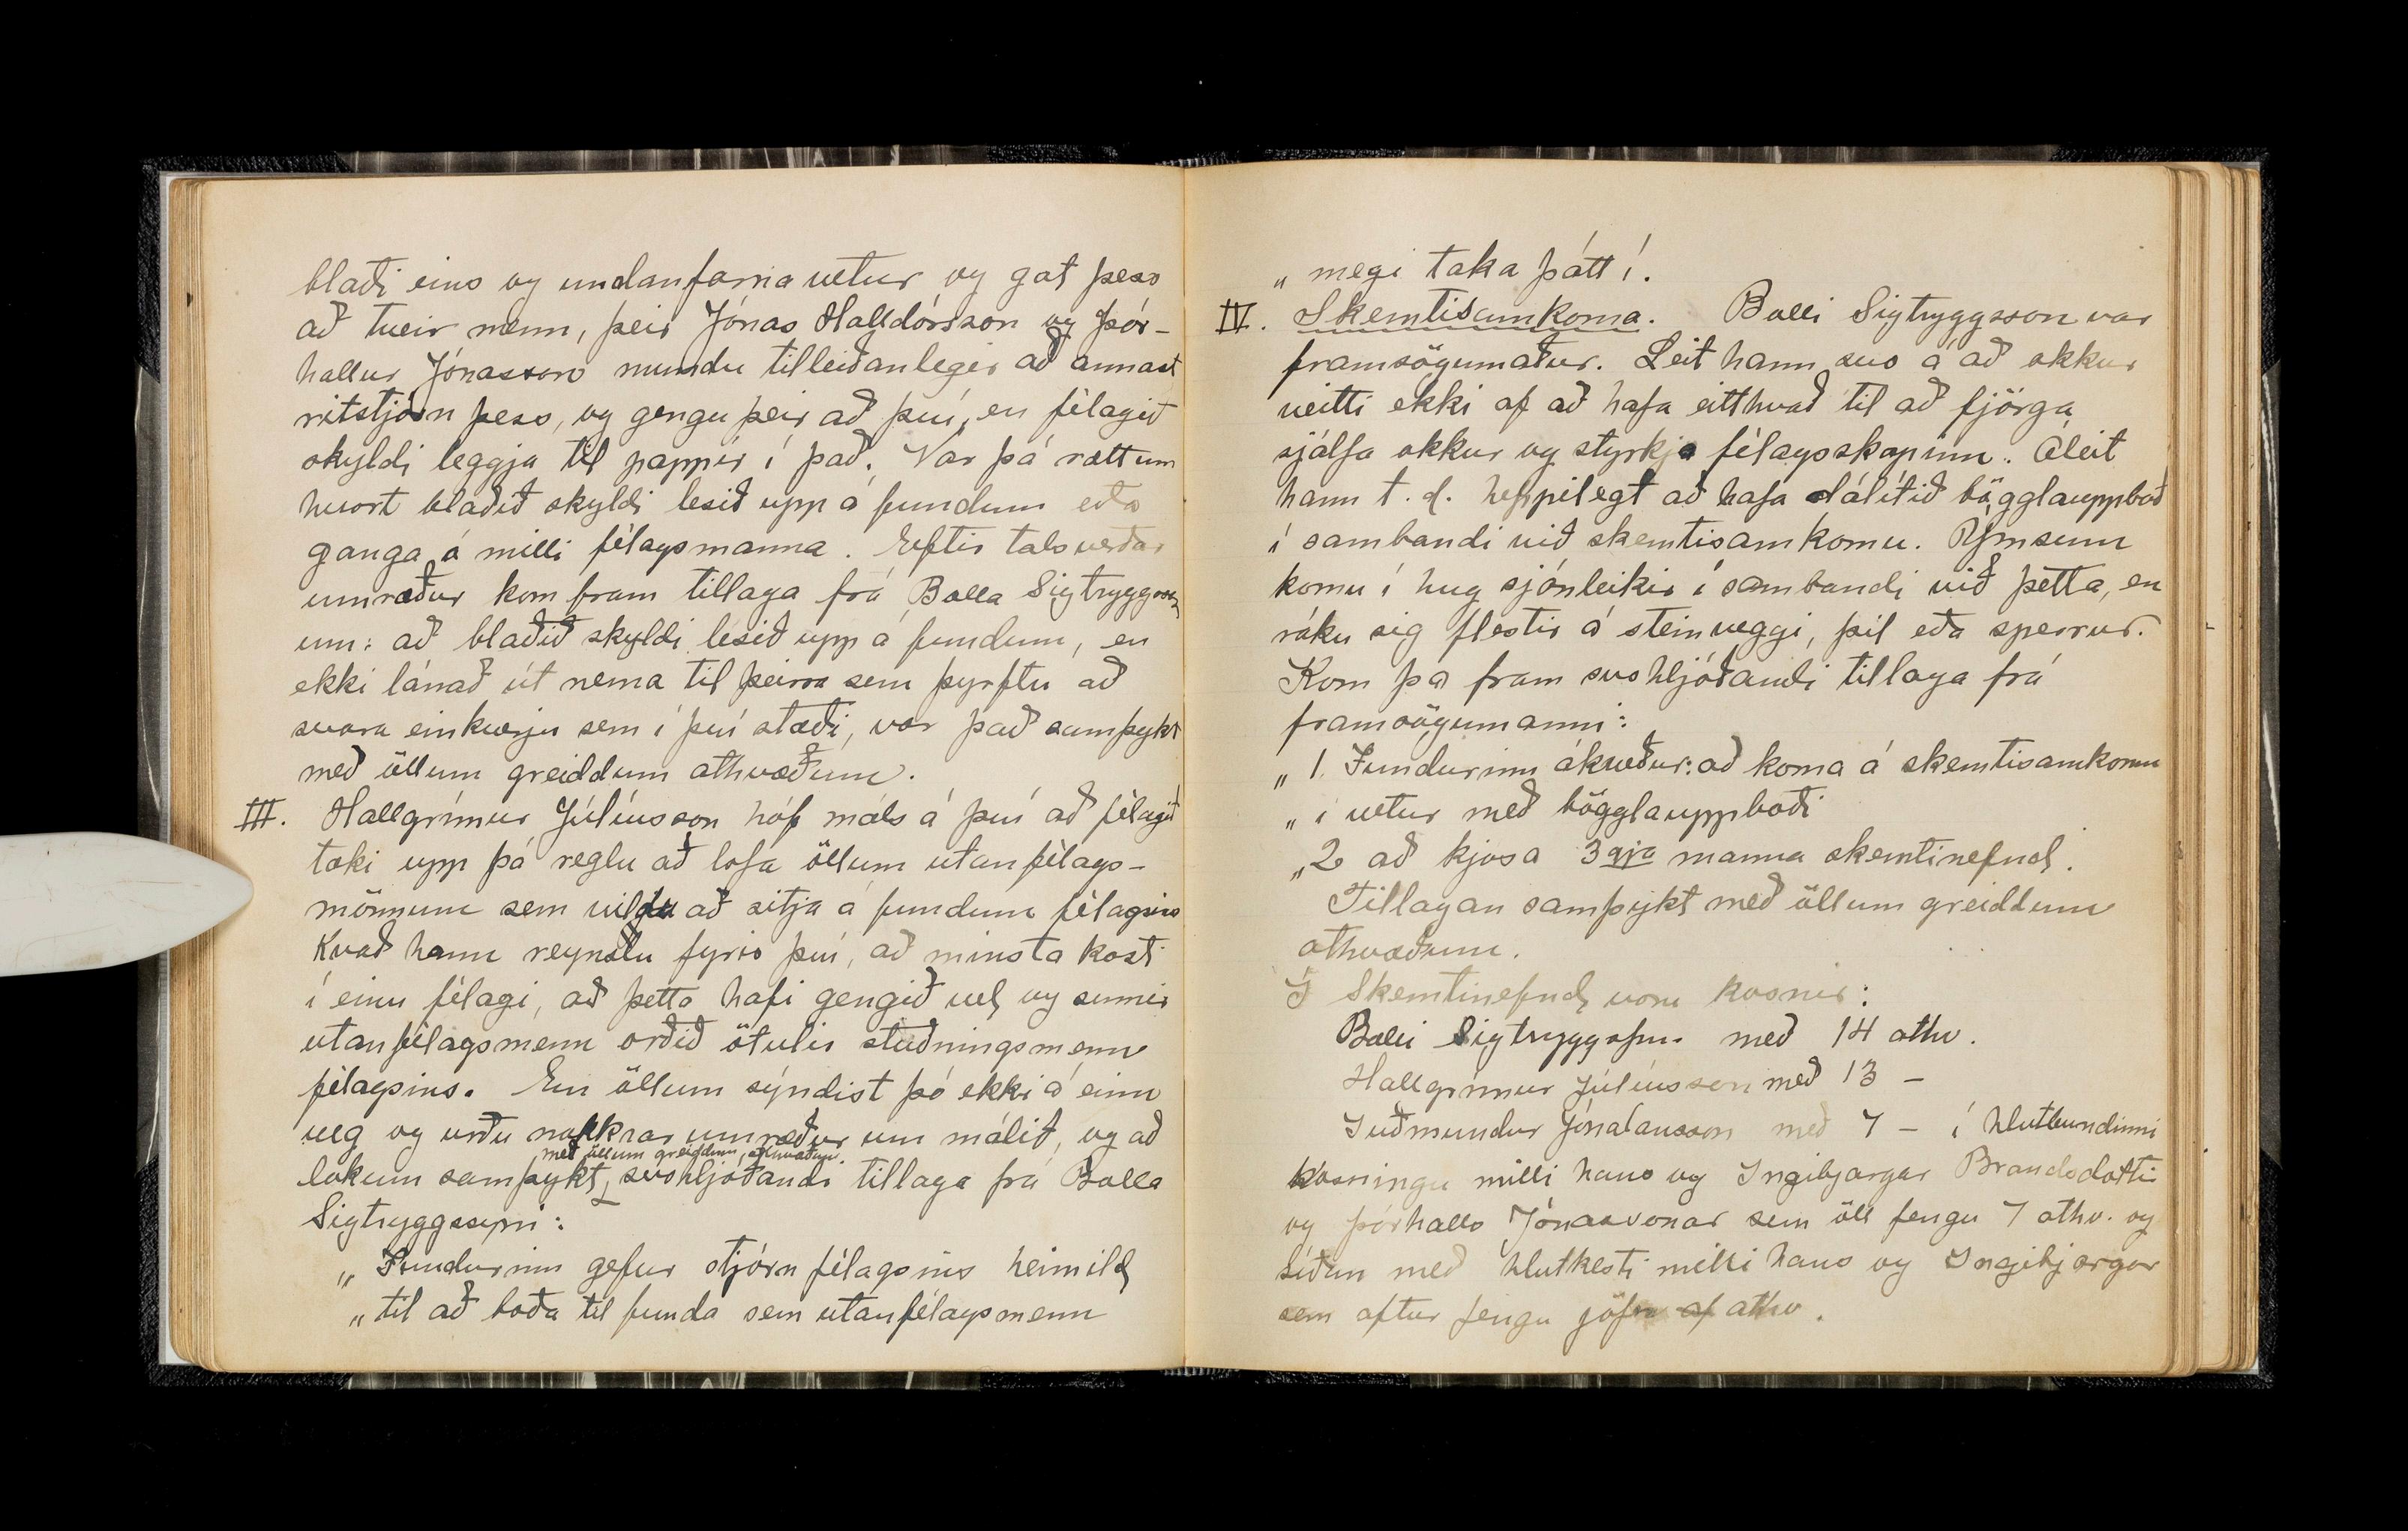 blaði eins og undanfarna vetur og gat þess
að tveir menn, þeir Jónas Halldórsson og Þór-
hallur Jónasson mundu tilleiðanlegir að annast
ritstjórn þess, og gengu þeir að því, en félagið
skyldi leggja til pappír í það. Var þá rætt um
hvort blaðið skyldi lesið upp á fundum eða
ganga á milli félagsmanna. Eftir talsverðar
umræður kom fram tillaga frá Balla Sigtryggssyni
um: að blaðið skyldi lesið upp á fundum, en
ekki lánað út nema til þeirra sem þyrftu að
svara einhverju sem í því stæði, var það samþykt
með öllum greiddum athvæðum.
III. Hallgrímur Júlíusson hóf máls á því að félagið
taki upp þá reglu að lofa öllum utanfélags-
mönnum sem vildu að sitja á fundum félagsins
Kvað hann reynslu fyrir því, að minsta kosti
í einu félagi, að þetta hafi gengið vel og sumir
utanfélagsmenn orðið ötulir stuðningsmenn
félagsins. En öllum sýndist þó ekki á einn
veg og urðu nokkrar umræður um málið, og að
með öllum greiddum athvæðum.
lokum samþykt, svohljóðandi tillaga frá Balla
Sigtryggssyni:
„Fundurinn gefur stjórn félagsins heimild
„til að boða til funda sem utanfélagsmenn
„megi taka þátt í.
IV. Skemtisamkoma. Balli Sigtryggsson var
framsögumaður. Leit hann svo á að okkur
veitti ekki af að hafa eitthvað til að fjörga
sjálfa okkur og styrkja félagsskapinn. Áleit
hann t.d. heppilegt að hafa dálítið bögglauppboð
í sambandi við skemtisamkomu. Ýmsum
komu í hug sjónleikir í sambandi við þetta, en
ráku sig flestir á steinveggi, þil eða sperrur.
Kom þá fram svohljóðandi tillaga frá
framsögumanni:
„1. Fundurinn ákveður: að koma á skemtisamkomu
„í vetur með bögglauppboði
„2 að kjósa 3gja manna skemtinefnd.
Tillagan samþykt með öllum greiddum
athvæðum.
Í Skemtinefnd voru kosnir:
Balli Sigtryggsson með 14 athv.
Hallgrímur Júlíusson með 13 –
Guðmundur Jónatansson með 7 – í hlutbundinni
kosningu milli hans og Ingibjargar Brandsdóttir
og Þórhalls Jónassonar sem öll fengu 7 athv. og
síðan með hlutkesti milli hans og Ingibjargar
sem aftur fengu jöfn athv.